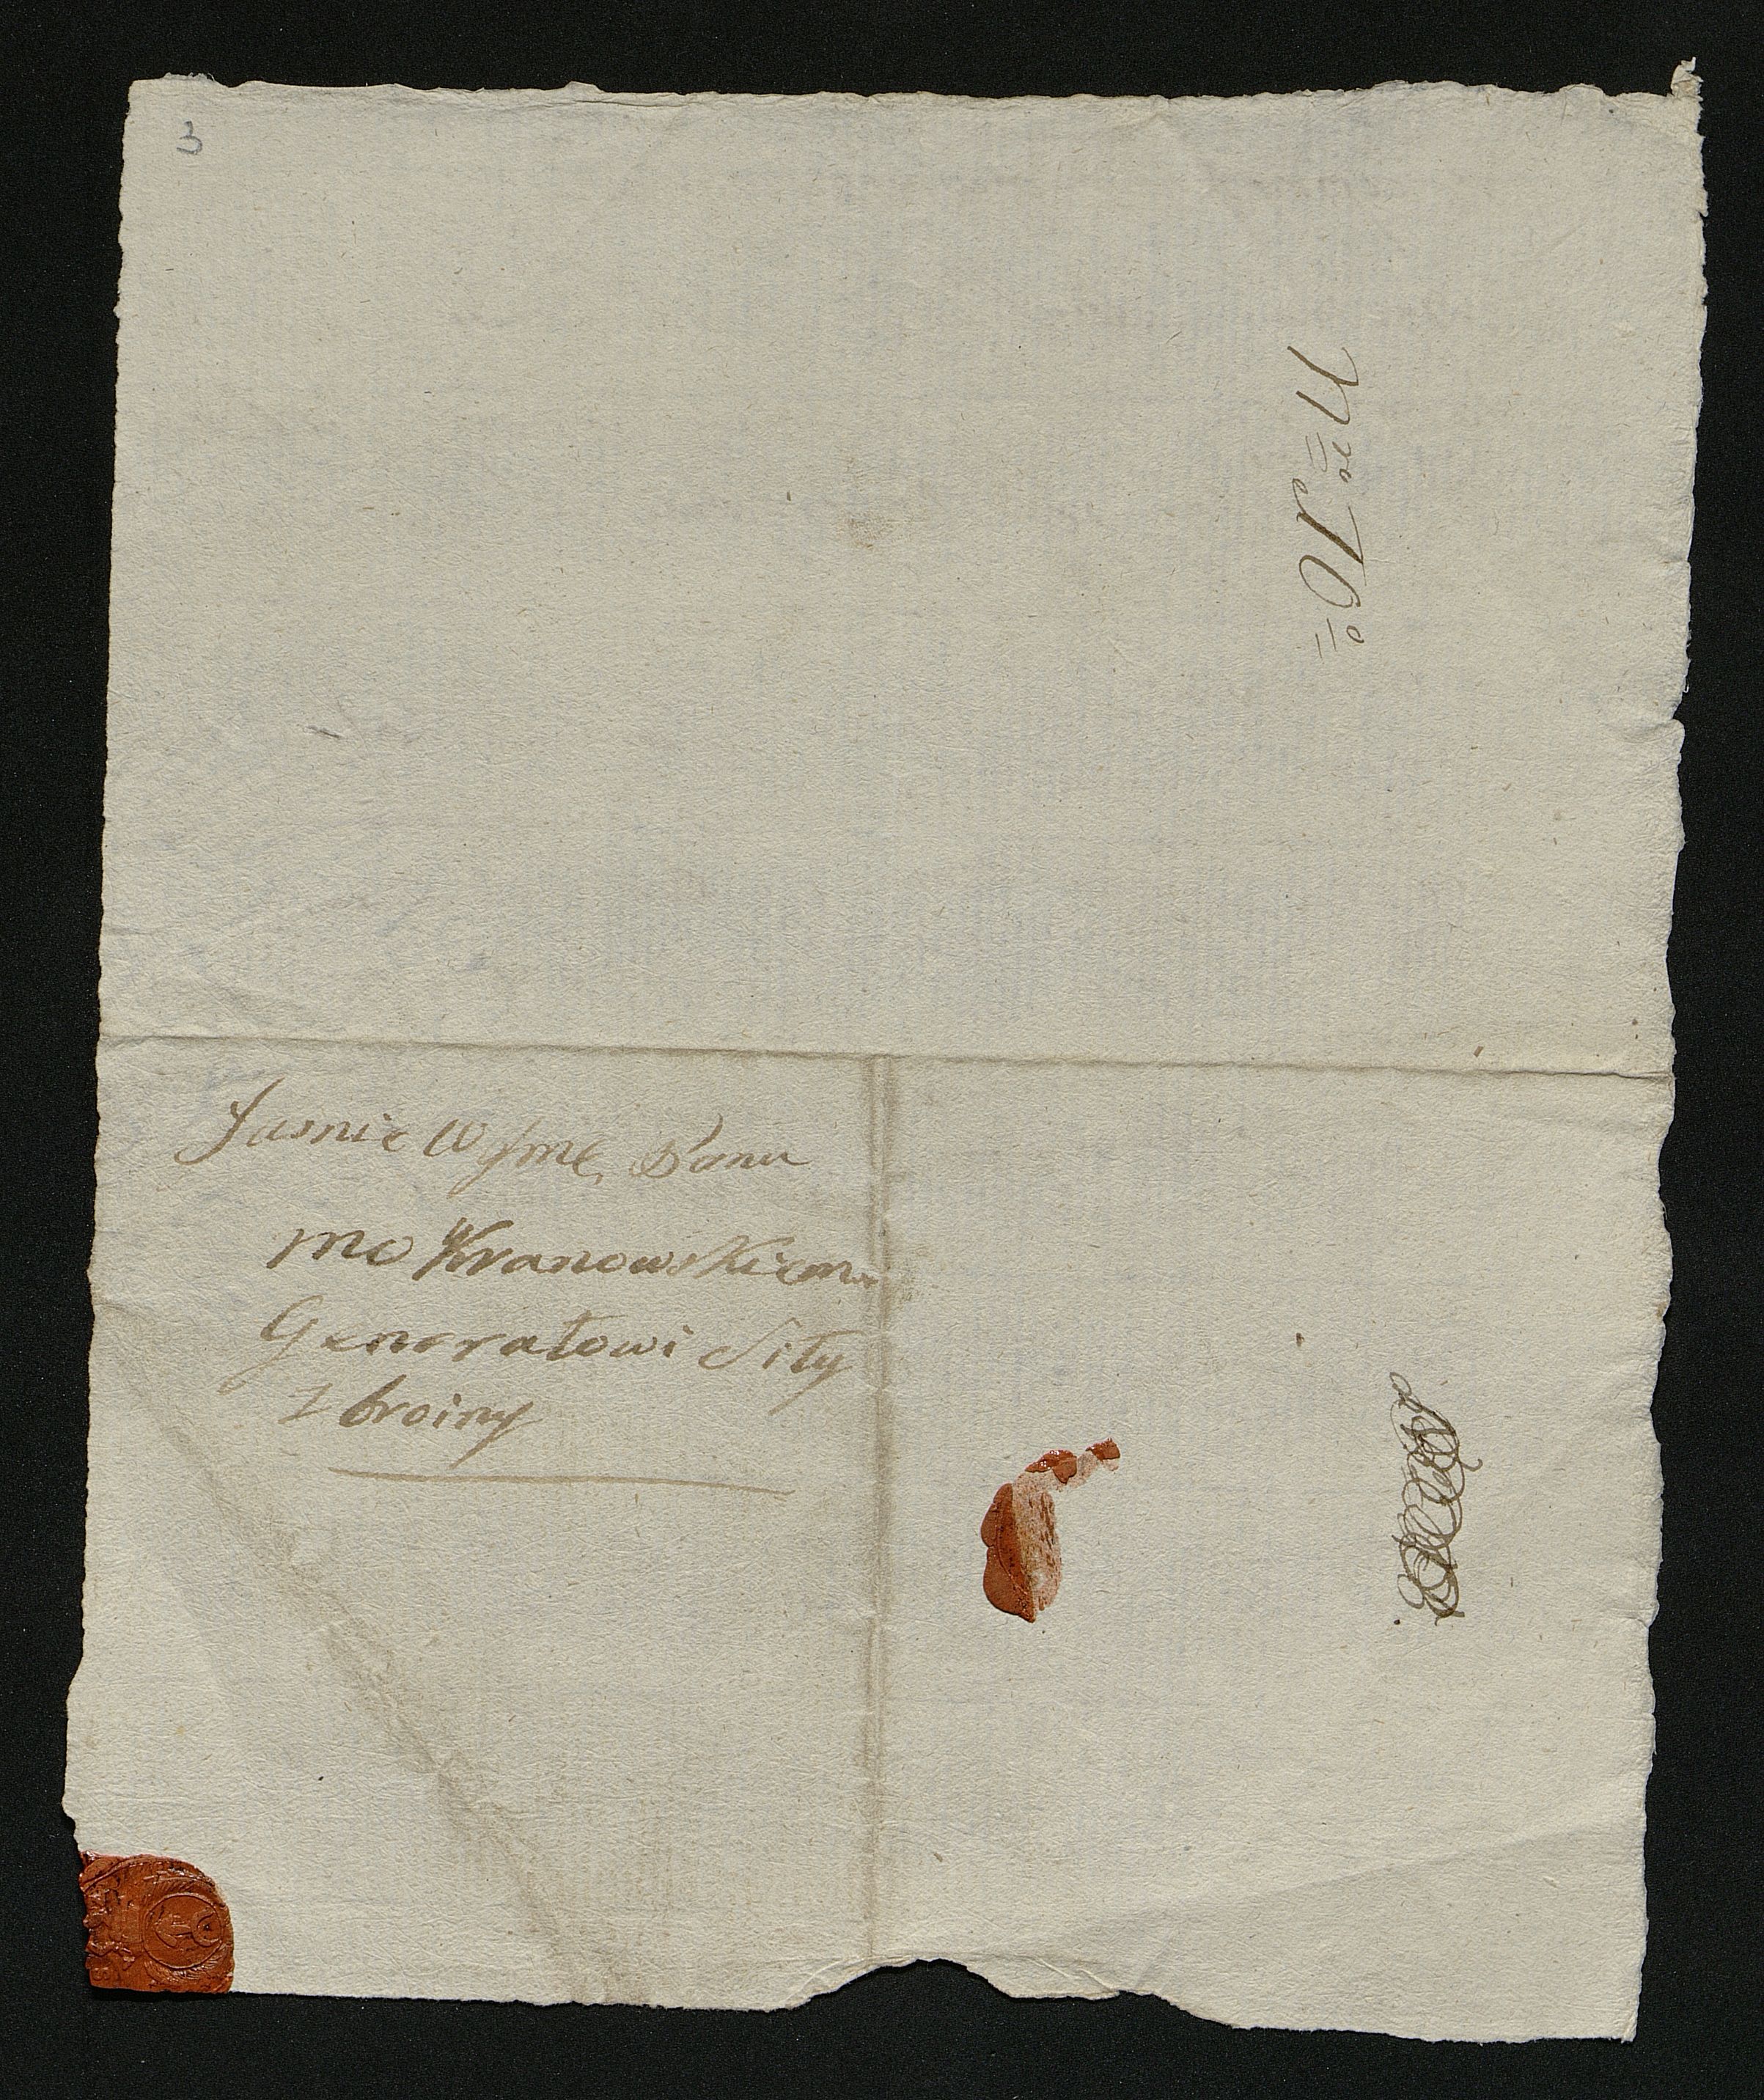 3
Nro 16
Jasnie Wyme Panu
mo Kranowskiemu
Generałowi Siły
Zbroiny